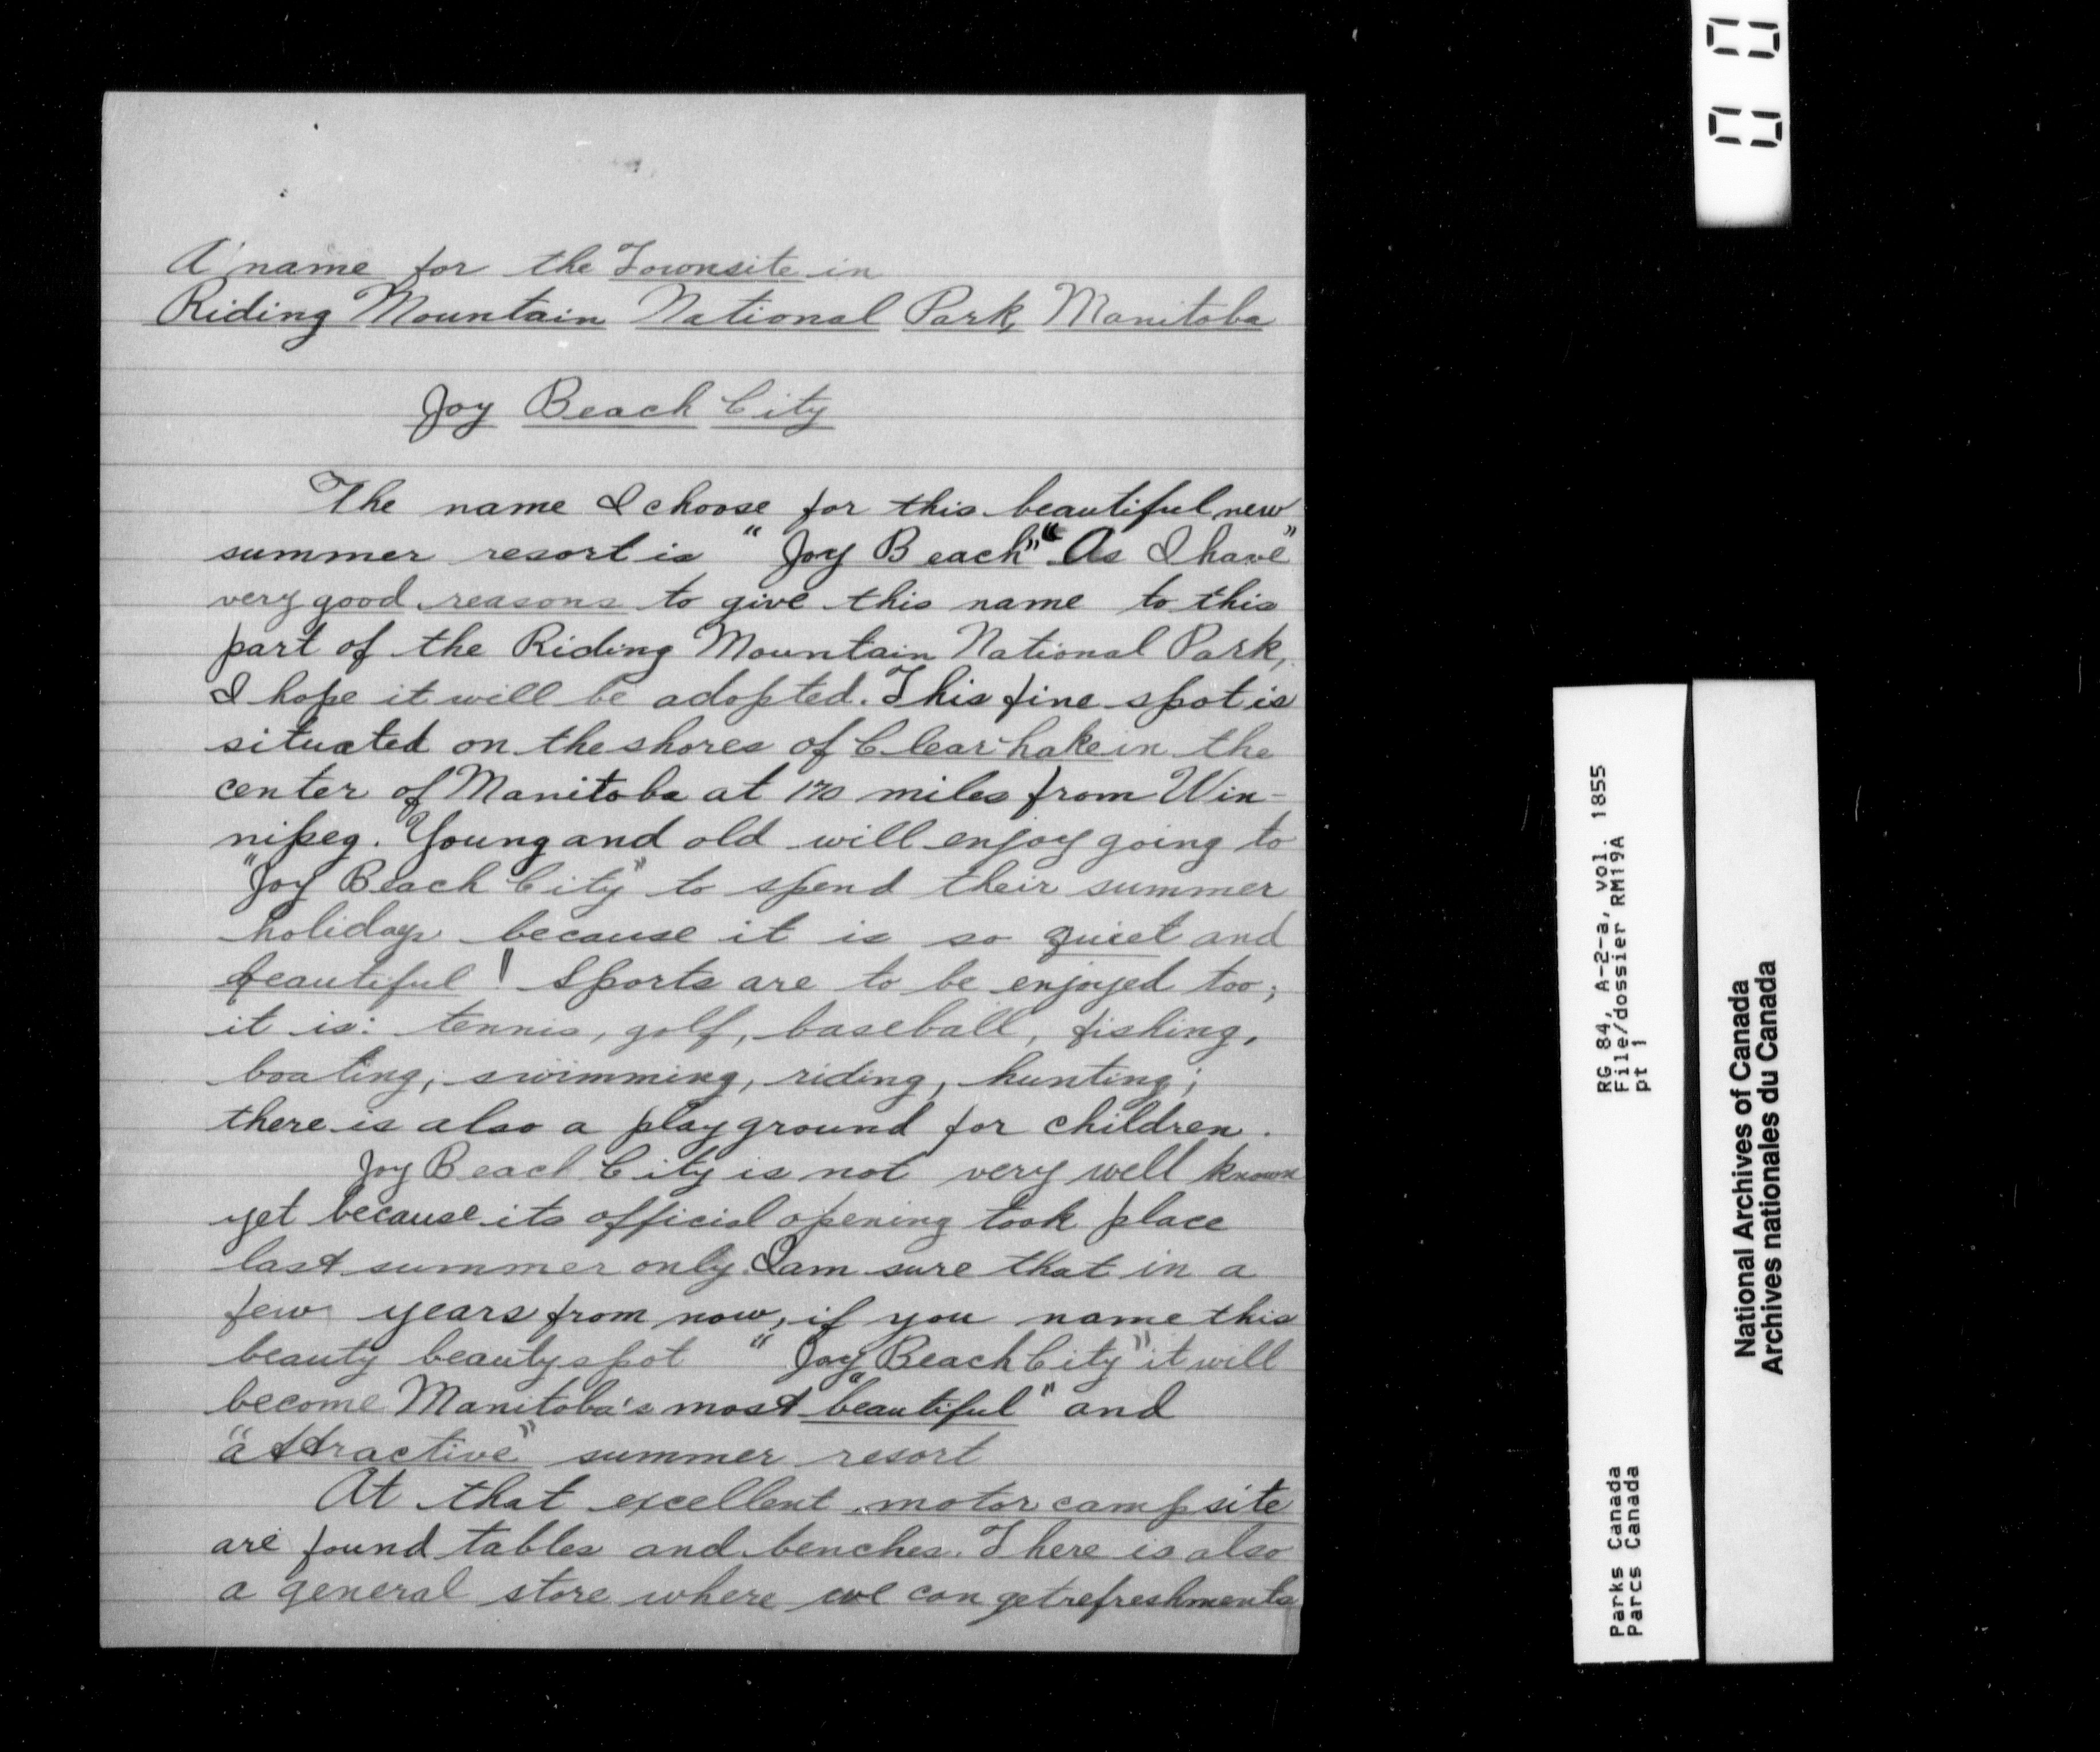 A name for the Townsite in
Riding Mountain National Park, Manitoba
Joy Beach City
The name I choose for this beautiful new
summer resort is "Joy Beach" "As I have"
very good reasons to give this name to this
part of the Riding Mountain National Park,
I hope it will be adopted. This fine spot is
situated on the shores of Clear Lake in the
center of Manitoba at 170 miles from Win-
nipeg. Young and old will enjoy going to
"Joy Beach City" to spend their summer
holidays because it is so quiet and
beautiful! Sports are to be enjoyed too;
it is: tennis, golf, baseball, fishing,
boating, swimming, riding, hunting;
there is also a playground for children.
Joy Beach City is not very well known
yet because its official opening took place
last summer only. I am sure that in a
few years from now, if you name this
beauty beauty spot "Joy Beach City" it will
become Manitoba's most "beautiful" and
"attractive" summer resort
At that excellent motor campsite
are found tables and benches. There is also
a general store where we can get refreshments
00
RG 84, A-2-a, vol. 1855
File/dossier RM19A
pt 1
Parks Canada
Parcs Canada
National Archives of Canada
Archives nationales du Canada